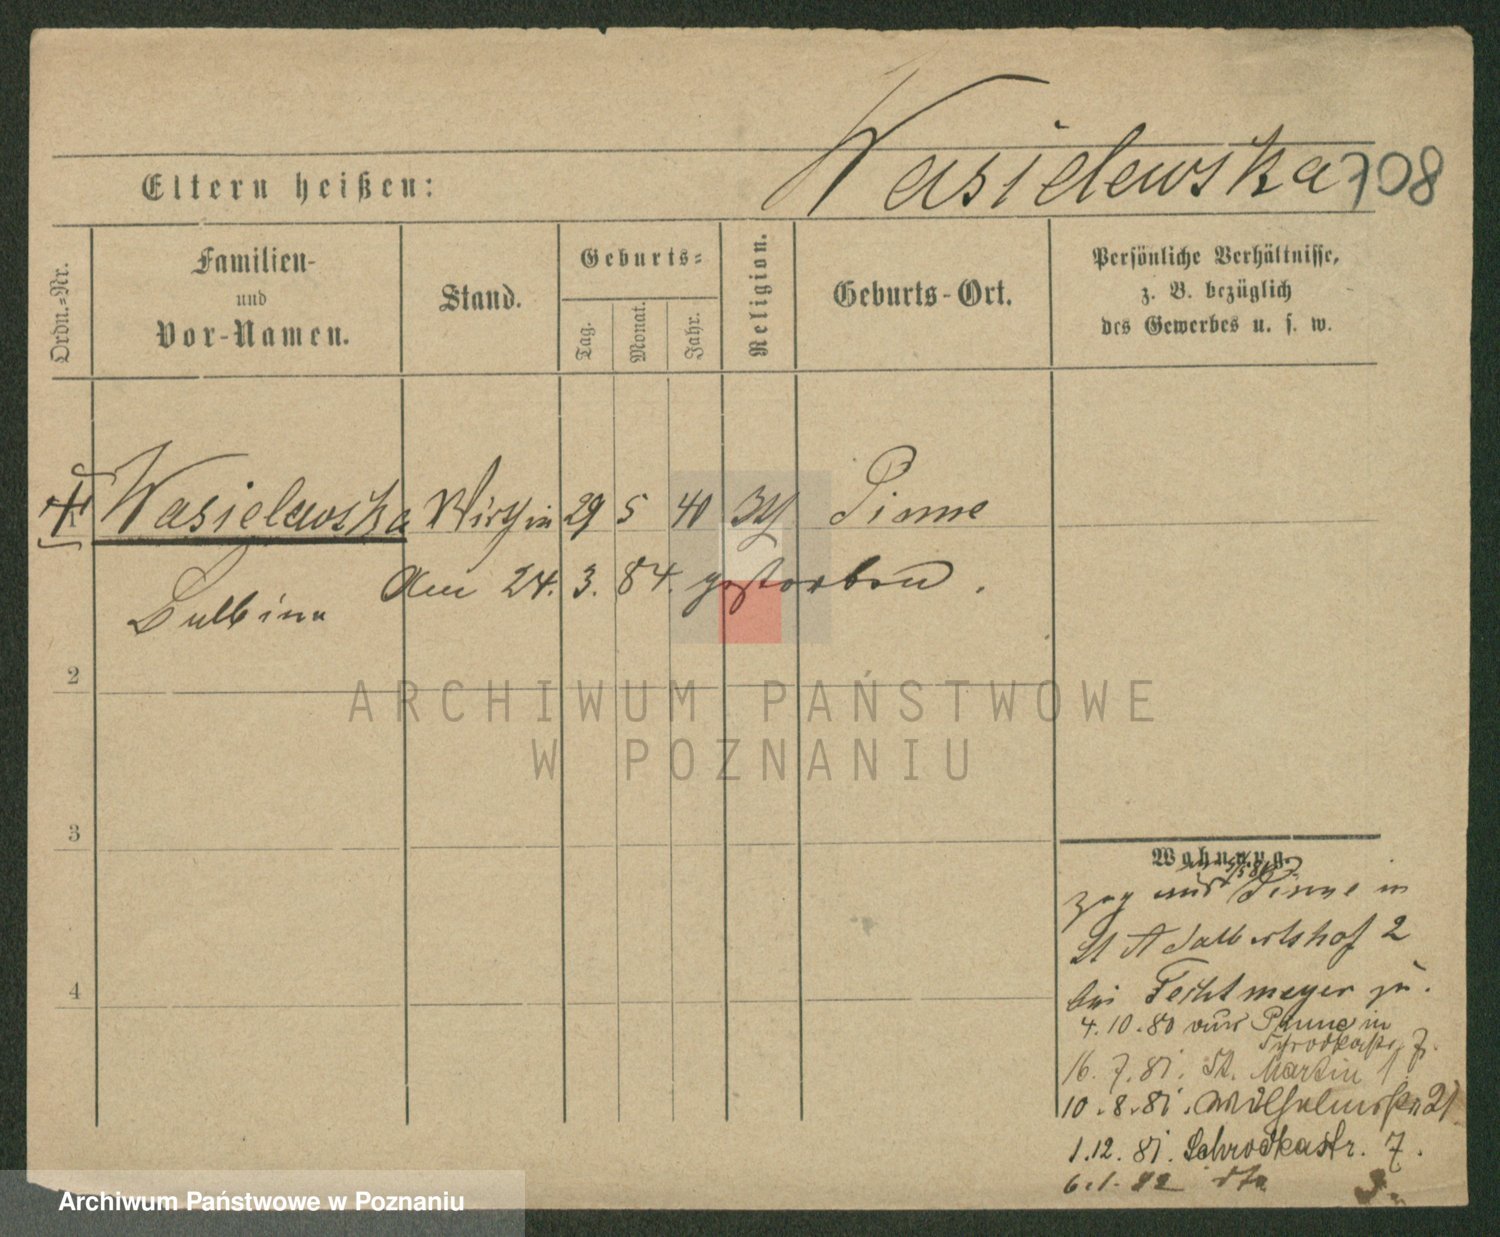 Wasielewska 708
Eltern heißen:
Ordn.-Nr.
Familien-
und
Vor-Namen.
Stand.
Geburts-
Tag.
Monat.
Jahr.
Religion.
Geburts-Ort.
Persönliche Verhältnisse,
z. B. bezüglich
des Gewerbes u. s. w.
Wasielewska Wirthin 29 5 40 Pinne
am 24. 3. 84. gestorben.
Balbina
2
3
4
ARCHIWUM PAŃSTWOWE
W POZNANIU
Wohnung.
zog aus Pinne in
St Adalbertshof 2
bei Fechtmeyer zu.
4.10.80 aus Pinne in
16.7.81. St. Martin 1
10.8.81. Wilhelmstr 21
1.12.81. Schrodkastr. 7.
6.1.82
Archiwum Państwowe w Poznaniu